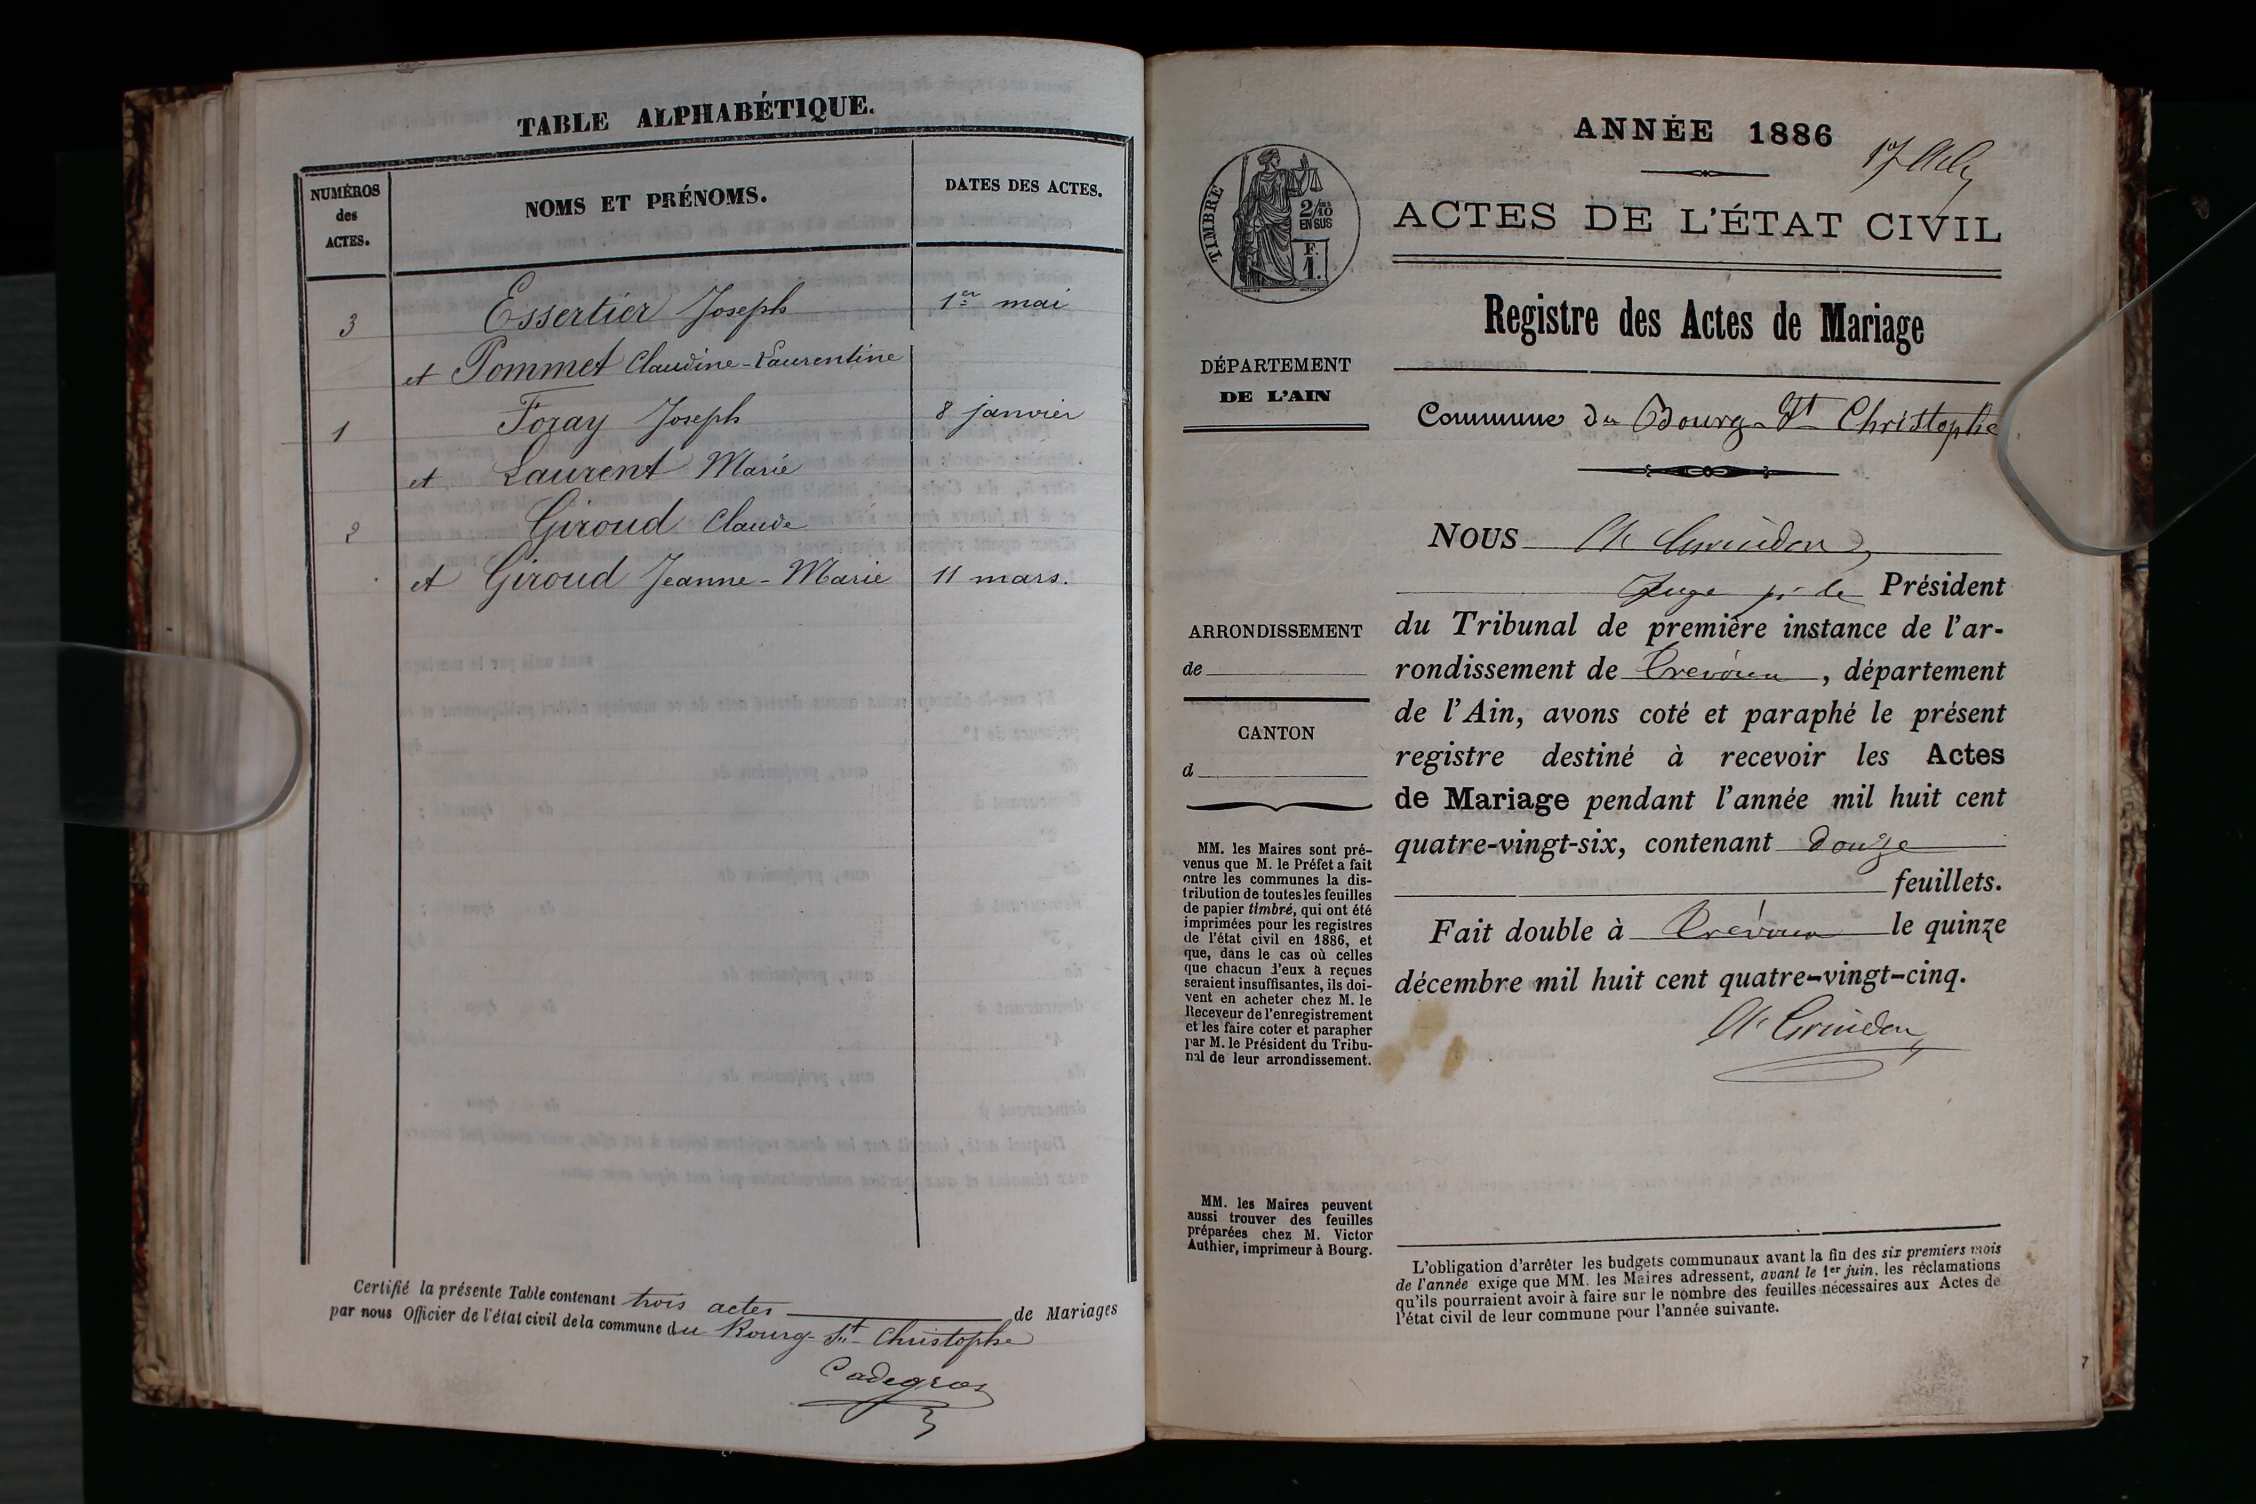 TABLE ALPHABÉTIQUE.
NUMÉROS
des
ACTES.
NOMS ET PRÉNOMS.
DATES DES ACTES.
3 Essertier Joseph 1er mai
et Pommet Claudine-Laurentine
1 Foray Joseph 8 janvier
et Laurent Marie
2 Giroud Claude
et Giroud Jeanne-Marie 11 mars.
Certifié la présente Table contenant trois actes de Mariages
par nous Officier de l'état civil de la commune du Bourg-St-Christophe
Cadegros
ANNÉE 1886
TIMBRE
2/10
EN SUS
F.
1.
ACTES DE L'ÉTAT CIVIL
Registre des Actes de Mariage
DÉPARTEMENT
DE L'AIN
Commune du Bourg-St Christophe
NOUS
Juge pr le Président
du Tribunal de première instance de l'ar-
rondissement de Trévoux, département
de l'Ain, avons coté et paraphé le présent
registre destiné à recevoir les Actes
de Mariage pendant l'année mil huit cent
quatre-vingt-six, contenant douze
feuillets.
Fait double à Trévoux le quinze
décembre mil huit cent quatre-vingt-cinq.
ARRONDISSEMENT
de
CANTON
d
MM. les Maires sont pré-
venus que M. le Préfet a fait
entre les communes la dis-
tribution de toutes les feuilles
de papier timbré, qui ont été
imprimées pour les registres
de l'état civil en 1886, et
que, dans le cas où celles
que chacun d'eux a reçues
seraient insuffisantes, ils doi-
vent en acheter chez M. le
Receveur de l'enregistrement
et les faire coter et parapher
par M. le Président du Tribu-
nal de leur arrondissement.
MM. les Maires peuvent
aussi trouver des feuilles
préparées chez M. Victor
Authier, imprimeur à Bourg.
L'obligation d'arrêter les budgets communaux avant la fin des six premiers mois
de l'année exige que MM. les Maires adressent, avant le 1er juin, les réclamations
qu'ils pourraient avoir à faire sur le nombre des feuilles nécessaires aux Actes de
l'état civil de leur commune pour l'année suivante.
7